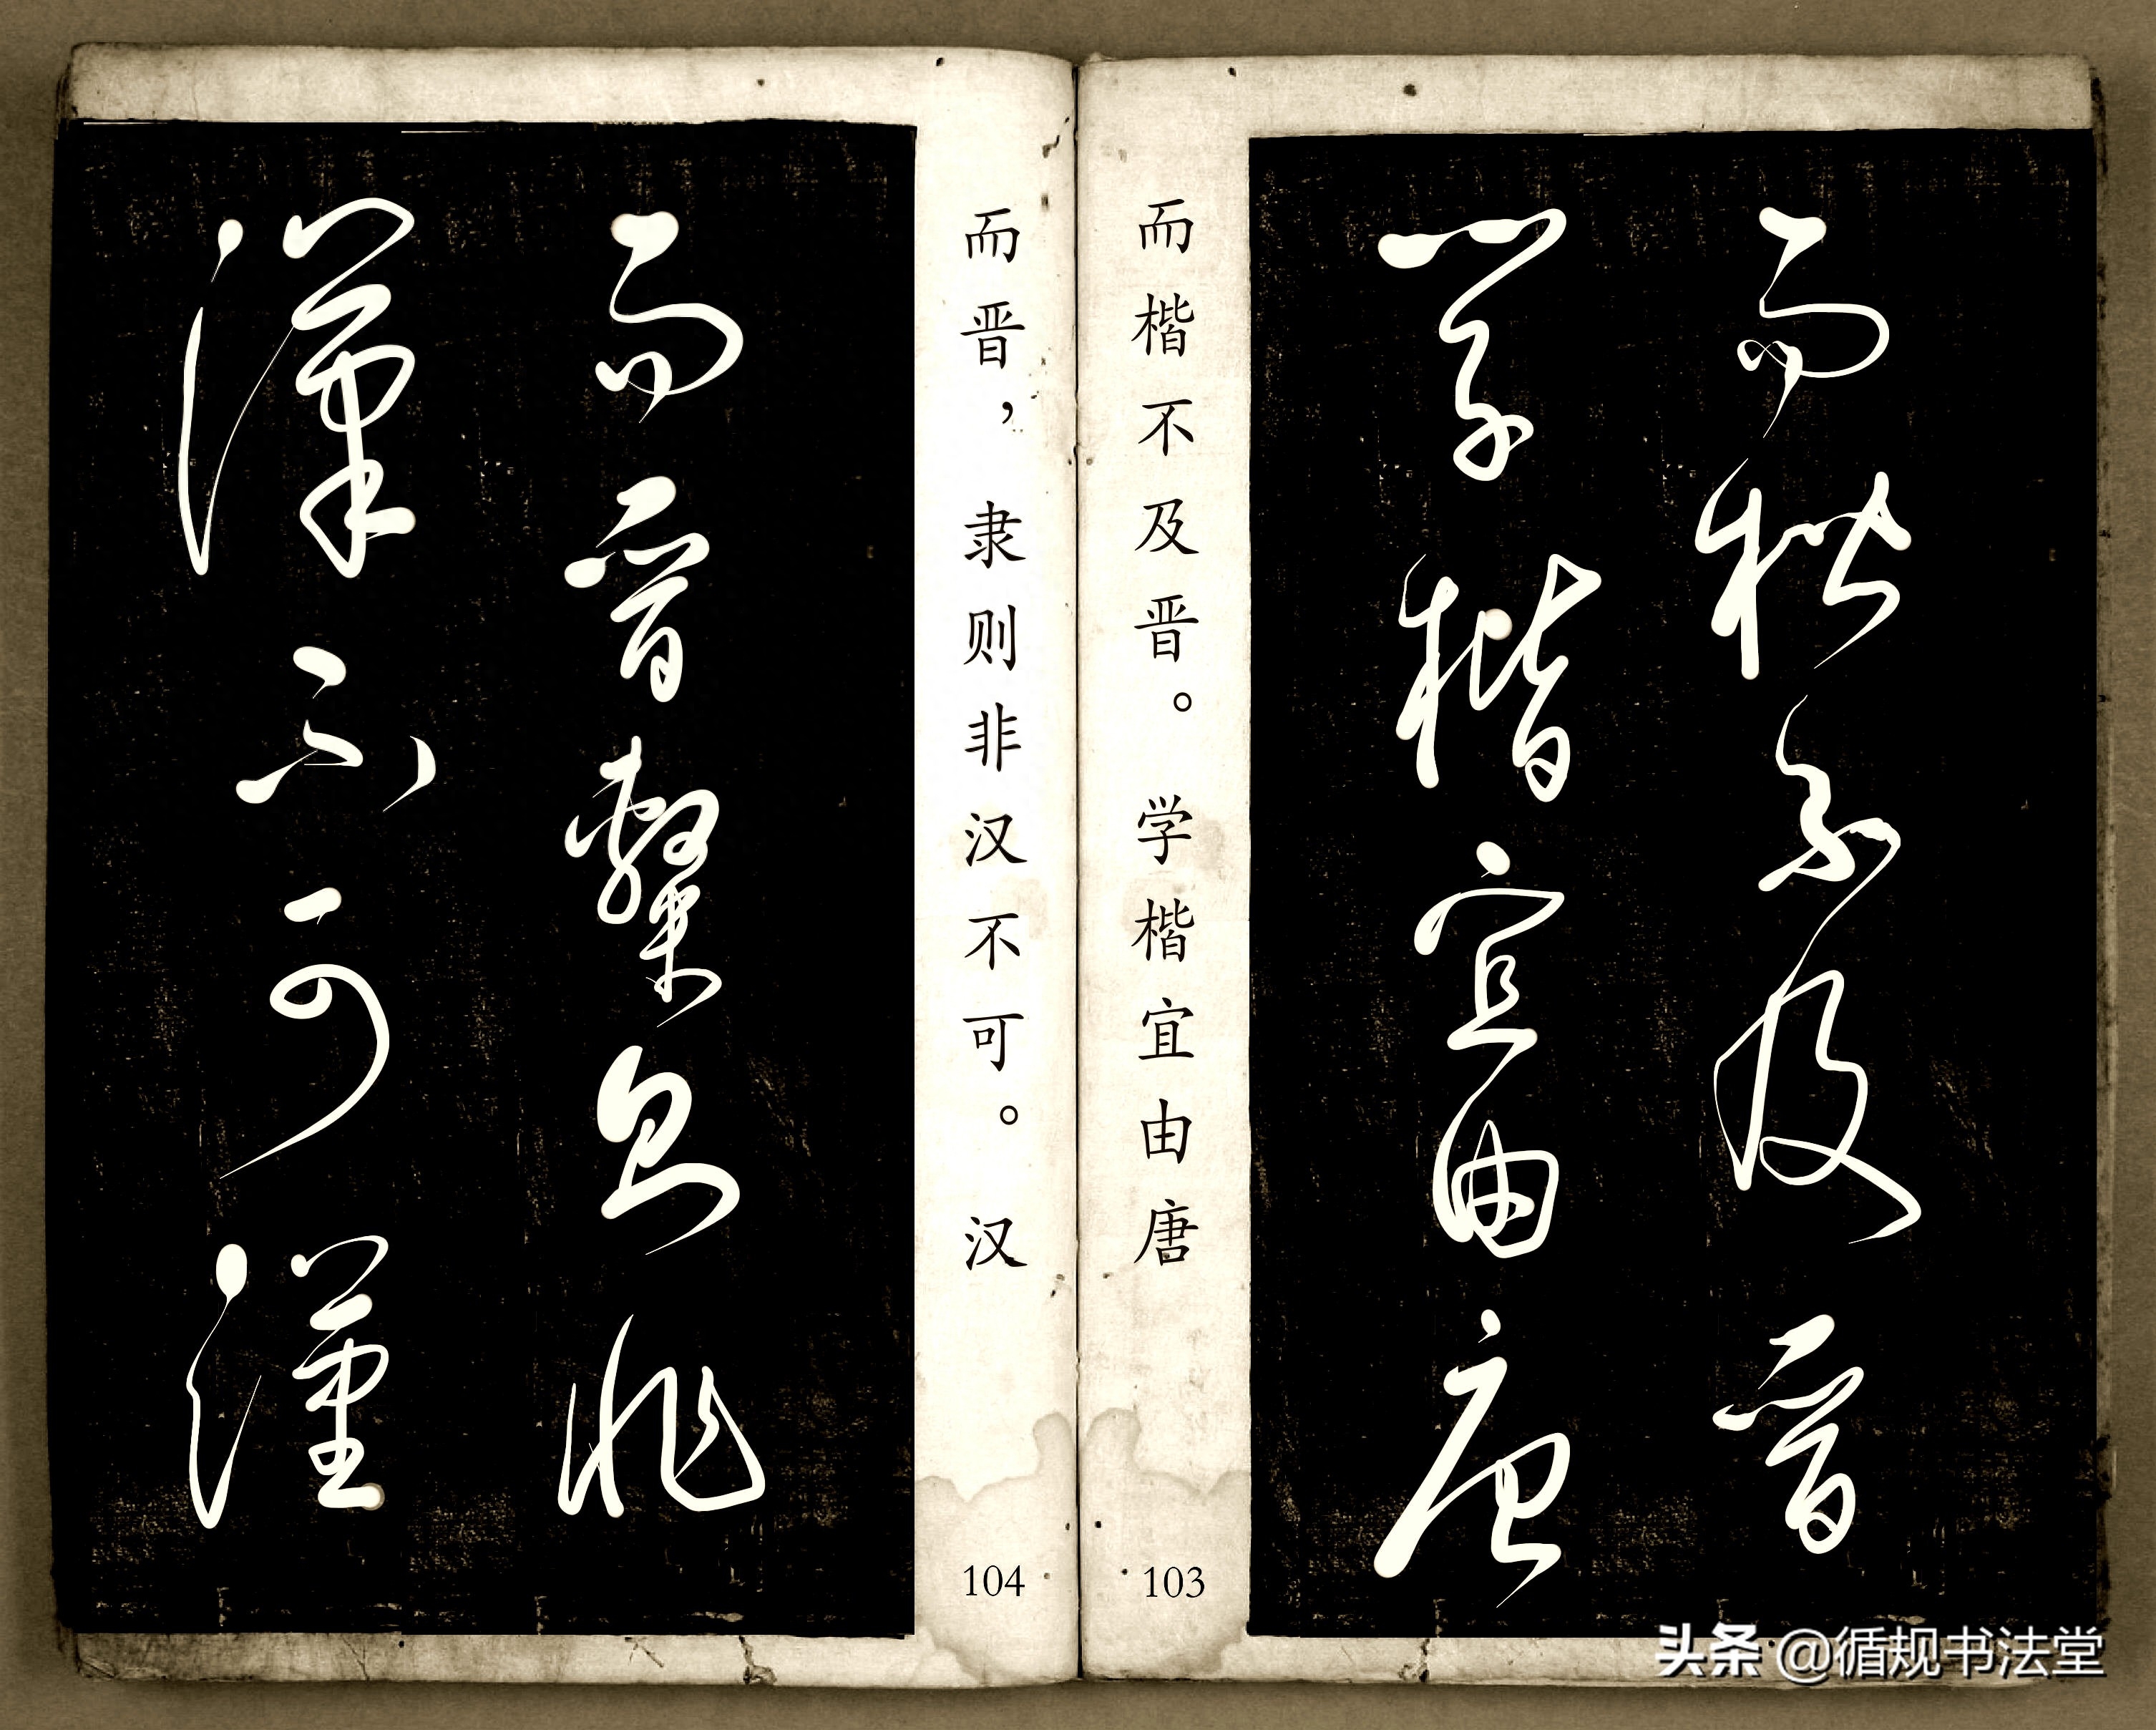 而楷不及晋
学楷宜由唐
而楷不及晋。学楷宜由唐
103
而晋，隶则非汉不可。汉
104
而晋隸則非
漢不可漢
头条 @循规书法堂